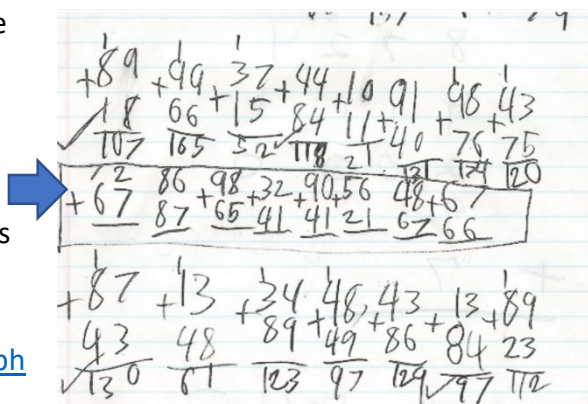 e
1 1 1 1 1
+89 +99 37 +44 +10 91 98 43
18 66 +15 84 11 +40 +76 +75
✓107 165 52 ✓118 21 131 174 120
72 86 98 32 90 56 48 67
+67 87 +65 +41 +41 +21 67 +66
s
1 1 1 1 1
+87 +13 +34 +48 43 13 89
43 48 89 49 +86 +84 +23
✓130 61 123 97 129 ✓97 112
ph